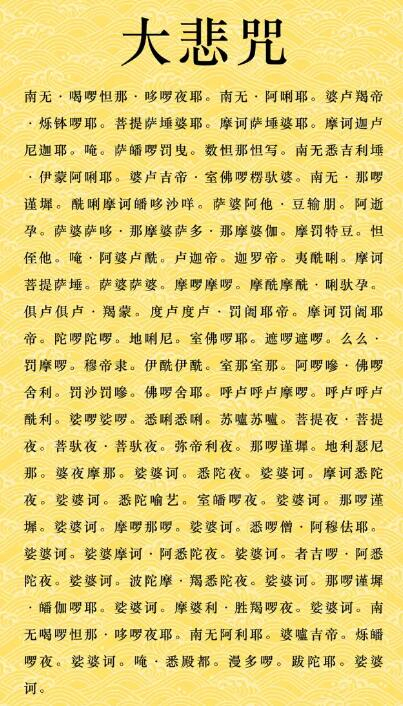 大悲咒
南无·喝啰怛那·哆啰夜耶。南无·阿唎耶。婆卢羯帝
·烁钵啰耶。菩提萨埵婆耶。摩诃萨埵婆耶。摩诃迦卢
尼迦耶。唵。萨皤啰罚曳。数怛那怛写。南无悉吉利埵
·伊蒙阿唎耶。婆卢吉帝·室佛啰楞驮婆。南无·那啰
谨墀。醯唎摩诃皤哆沙咩。萨婆阿他·豆输朋。阿逝
孕。萨婆萨哆·那摩婆萨多·那摩婆伽。摩罚特豆。怛
侄他。唵·阿婆卢醯。卢迦帝。迦罗帝。夷醯唎。摩诃
菩提萨埵。萨婆萨婆。摩啰摩啰。摩醯摩醯·唎驮孕。
俱卢俱卢·羯蒙。度卢度卢·罚阇耶帝。摩诃罚阇耶
帝。陀啰陀啰。地唎尼。室佛啰耶。遮啰遮啰。么么·
罚摩啰。穆帝隶。伊醯伊醯。室那室那。阿啰嘇·佛啰
舍利。罚沙罚嘇。佛啰舍耶。呼卢呼卢摩啰。呼卢呼卢
醯利。娑啰娑啰。悉唎悉唎。苏嚧苏嚧。菩提夜·菩提
夜。菩驮夜·菩驮夜。弥帝利夜。那啰谨墀。地利瑟尼
那。婆夜摩那。娑婆诃。悉陀夜。娑婆诃。摩诃悉陀
夜。娑婆诃。悉陀喻艺。室皤啰夜。娑婆诃。那啰谨
墀。娑婆诃。摩啰那啰。娑婆诃。悉啰僧·阿穆佉耶。
娑婆诃。娑婆摩诃·阿悉陀夜。娑婆诃。者吉啰·阿悉
陀夜。娑婆诃。波陀摩·羯悉陀夜。娑婆诃。那啰谨墀
·皤伽啰耶。娑婆诃。摩婆利·胜羯啰夜。娑婆诃。南
无喝啰怛那·哆啰夜耶。南无阿利耶。婆嚧吉帝。烁皤
啰夜。娑婆诃。唵·悉殿都。漫多啰。跋陀耶。娑婆
诃。